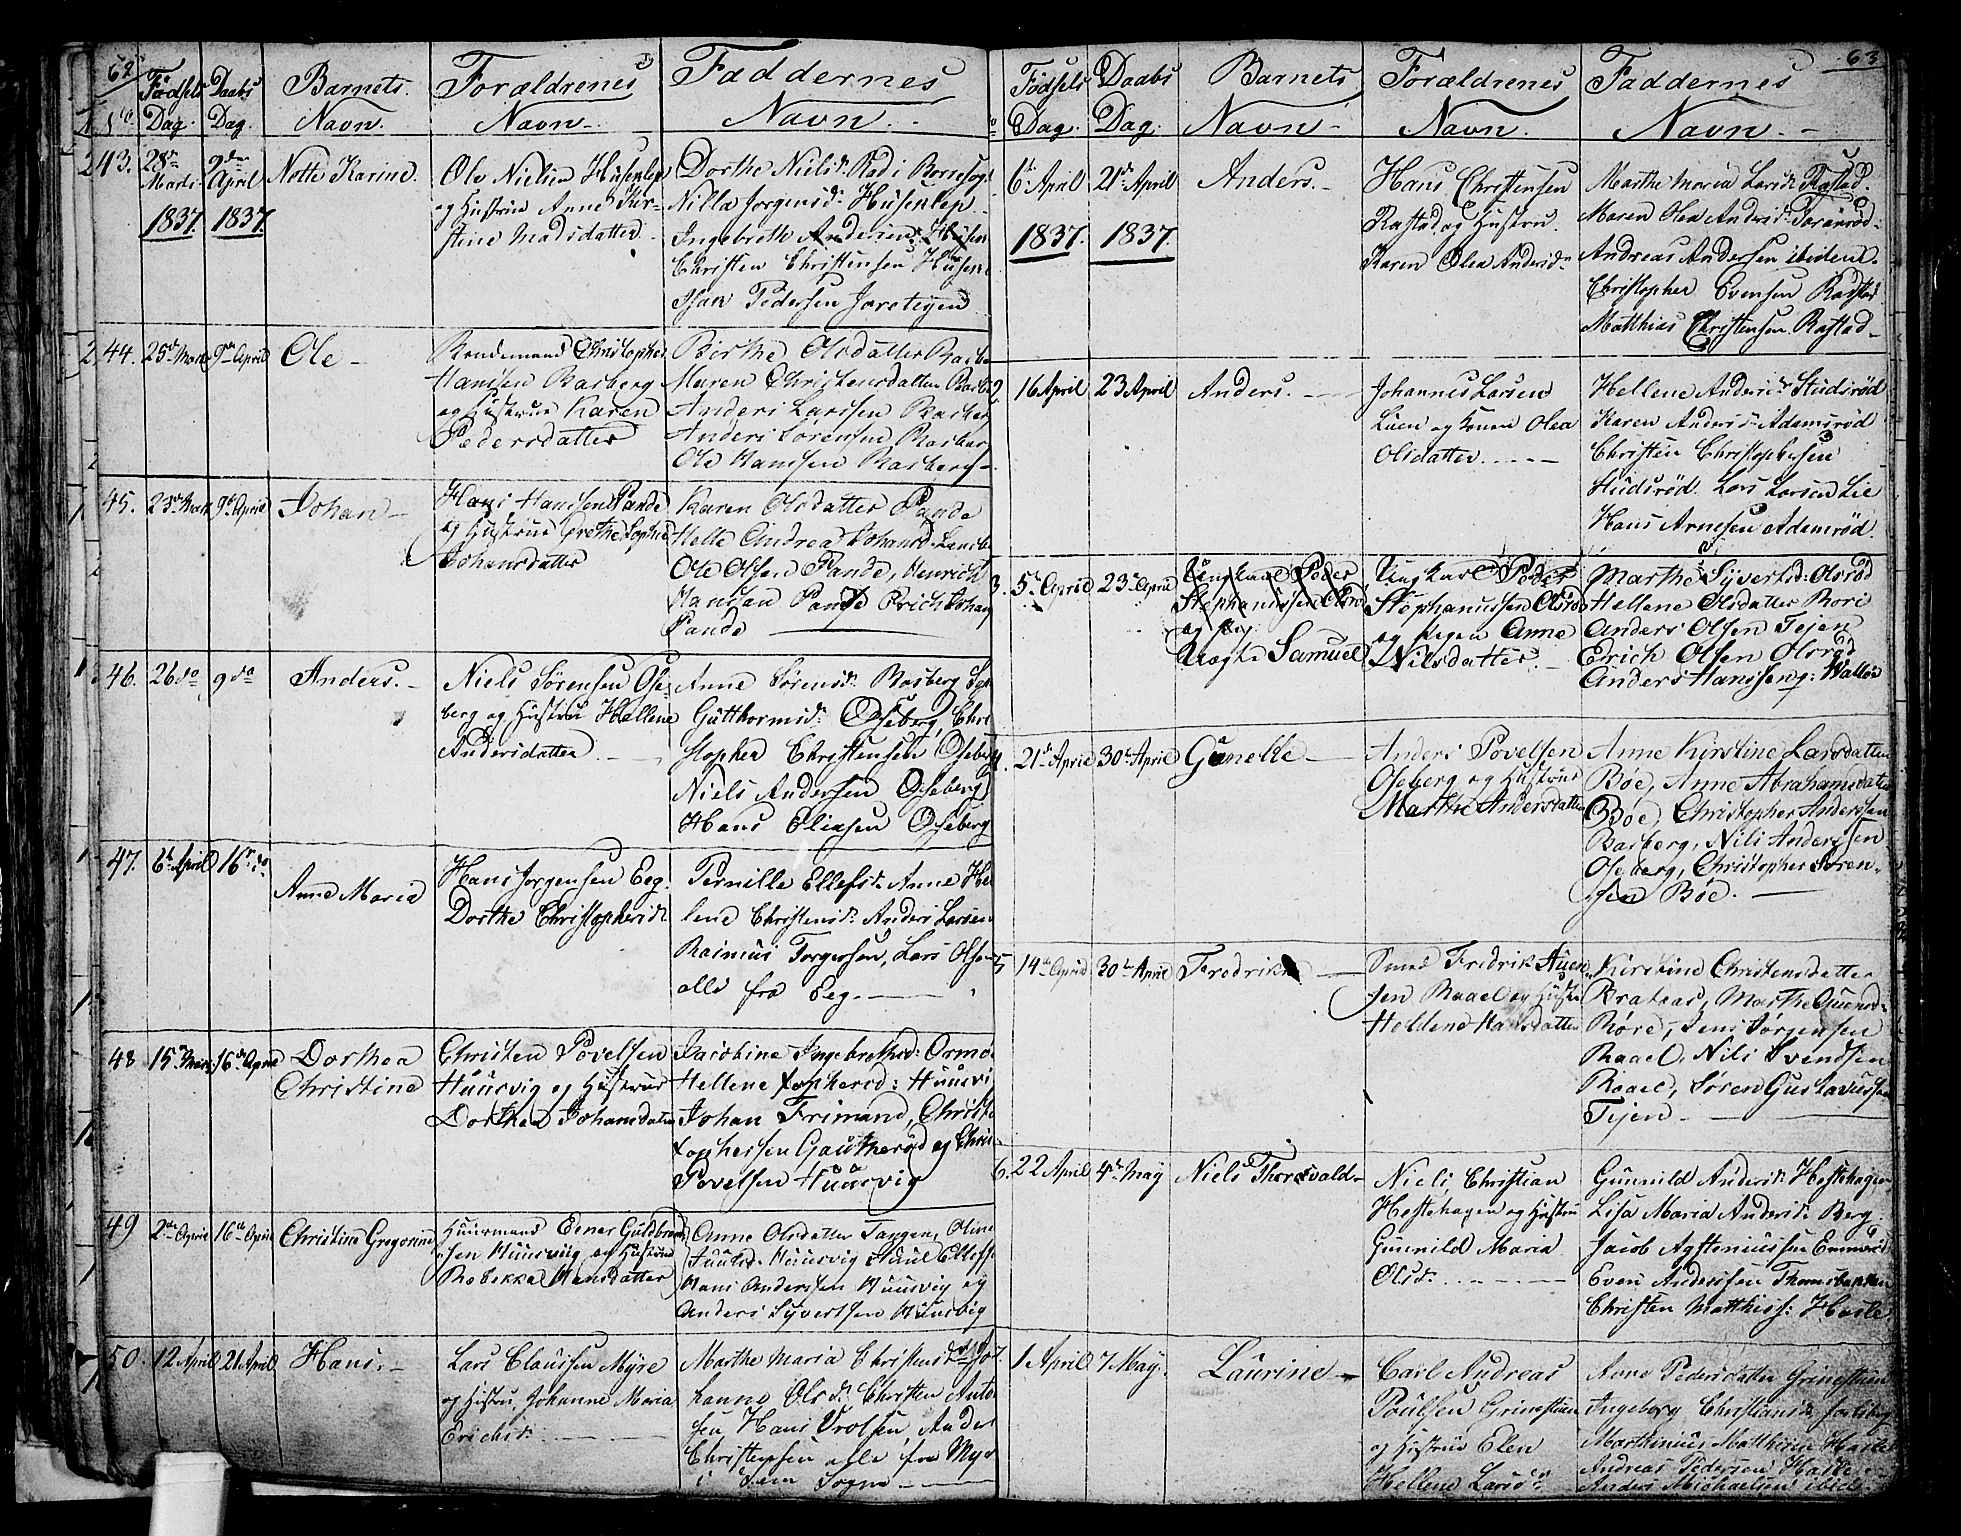 62
No
Fødsels Dag.
Daabs Dag.
Barnets Navn.
Forældrenes Navn
Faddernes Navn.
243.
28de Marts 1837.
9den April 1837.
Notte Karine.
Ole Nielsen Husenlep
og Hustrue Anne Kir-
stine Madsdatter.
Dorthe Nielsd:
Nilla Jorgensd: Husenlep
Ingebreth Andersen
Christen Christensen
Isan Pedersen Jaretegen
44.
25de Marts
9de April
Ole
Christopher
Hanssen Barberg
og Hustrue Karen
Pedersdatter
Birthe Olsdatter
Maren Christensdatter
Anders Larssen
Anders Sørensen
Ole Hanssen Barberg
45.
23de Marts
9de April
Johan
Hans Hanssen Pande
og Hustrue Grethe Sophie
Johansdatter
Karen Olsdatter Pande
Helle Andrea Johansd.
Ole Olsen Pande, Henrich
Hansen Pande Erich Johan
Pande
46.
26 do
9 do
Anders.
Niels Sørensen Ose-
berg og Hustrue Hellene
Andersdatter
Anne Sørensd: Basberg
Gutthormsd: Oseberg, Chri
stopher Christensen Oseberg
Niels Andersen Oseberg
Hans Eliasen Oseberg
47.
6te April
16de do
Anne Maria
Hans Jorgensen Eeg.
Dorthe Christophersdr
Pernille Ellefsd. Anne He
lene Christensd: Anders Larsen
Rasmus Torgersen, Lars Olsen
alle fra Eeg.
48
15de Marts
16de April
Dorthea
Christine
Christen Povelsen
Huusvig og Hustrue
Dorthea Johansdatter
Jacobine Ingebrethsd: Ormø
Hellene Xophersd: Huusvi
Johan Frimand, Christ
Xophersen Gautherød og Chris
Povelsen Huusvig
49
2de April
16de April
Christine Gregorine
Huusmand Einer Guldbrand
sen Huusvig og Hustrue
Rebekka Hansdatter
Anne Olsdatter Tangen, Oline
Huusvig Paul Ellefs
Hans Andersen Huusvig og
Anders Syvertsen Huusvig
50.
12 April
21 April
Hans.
Lars Claussen Myre
og Hustru, Johanne Maria
Erichsd:
Marthe Maria Christensd: Jo
hanne Olsdr Christen Anto
sen Hans Vrolsen, Ander
Christensen alle fra Myr
i Sem Sogn
63
Fødsels Dag.
Daabs Dag.
Barnets Navn
Forældrenes Navn.
Faddernes Navn.
6te April 1837.
21de April 1837.
Anders.
Hans Christensen
Rastad og Hustru.
Karen Olea Andersdr
Marthe Maria Larsdr Rastad.
Maren Olea Andersd:
Andreas Andersen ibidem.
Christopher Svensen Rastad
Matthias Christensen Rastad
2
16 April
23 April
Anders.
Johannes Larsen
Lien og Konen Olea
Olsdatter
Hellene Andersdr Studsrød
Karen Andersd: Adamsrød
Christen Christophersen
Studsrød. Lars Larsen Lie
Hans Arnesen Adamrød
3.
5te April
23de April
Ungkarl Peder
Stephanussen Olsrød
og Pig
Uægte Samuel
Ungkarl Peder
Stephanussen Olsrød
og Pigen Anne
Nilsdatter.
Marthe Syvertsd: Olsrød
Hellene Olsdatter Bori
Anders Olsen Tejen
Erich Olsen Olsrød
Anders Hanssen Walløe
4.
21de April
30de April
Gunelle
Anders Povelsen
Oseberg og Hustrue
Marthe Andersdatter
Anne Kirstine Larsdatter
Bøe, Anne Abrahamsdatter
Bøe Christopher Anderssen
Barberg, Nils Anderssen
Oseberg, Christopher Søren-
sen Bøe.
5
14de April
30te April
Fredrik
Smed Fredrik
sen Raael og Hustru
Hellene Hansdatter
Kirstine Christensdatter
Brataas, Marthe
Røre, Jens Jørgensen
Raael, Nils Svendsen
Raael, Søren Gustavussen
Tejen
6.
22 April
4de May
Niels Thorvald
Niels Christian
Hestehagen og Hustru
Gunnild Maria
Olsd:
Gunnild Andersdr Hestehagen
Lisa Maria Andersd. Berg
Jacob Agstenussen
Even Anderssen Thomsbakken
Christen Matthiss: Hasle
7.
1 April
7 May.
Laurine
Carl Andreas
Poulsen Grinestuen
og Hustrue Elen
Hellene Larsdr
Anne Pedersdatter Grinestuen
Ingeborg Christiansdr
Marthinius Matthesen Hasle
Andreas Pedersen Hasle
Anders Michaelsen ibid.